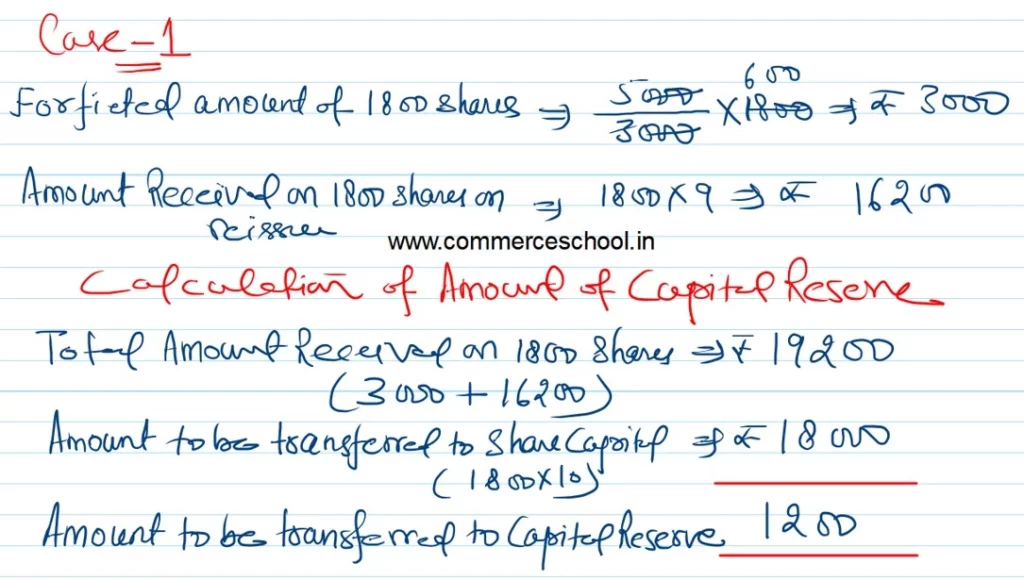 Case-1
600
Forfieted amount of 1800 shares ⇒ 5000/3000 × 1800 ⇒ ₹ 3000
Amount Received on 1800 shares on ⇒ 1800×9 ⇒ ₹ 16200
reissue
www.commerceschool.in
Calculation of Amount of Capital Reserve
Total Amount Received on 1800 Shares ⇒ ₹ 19200
(3000 + 16200)
Amount to be transferred to Share Capital ⇒ ₹ 18000
(1800×10)
Amount to be transferred to Capital Reserve 1200